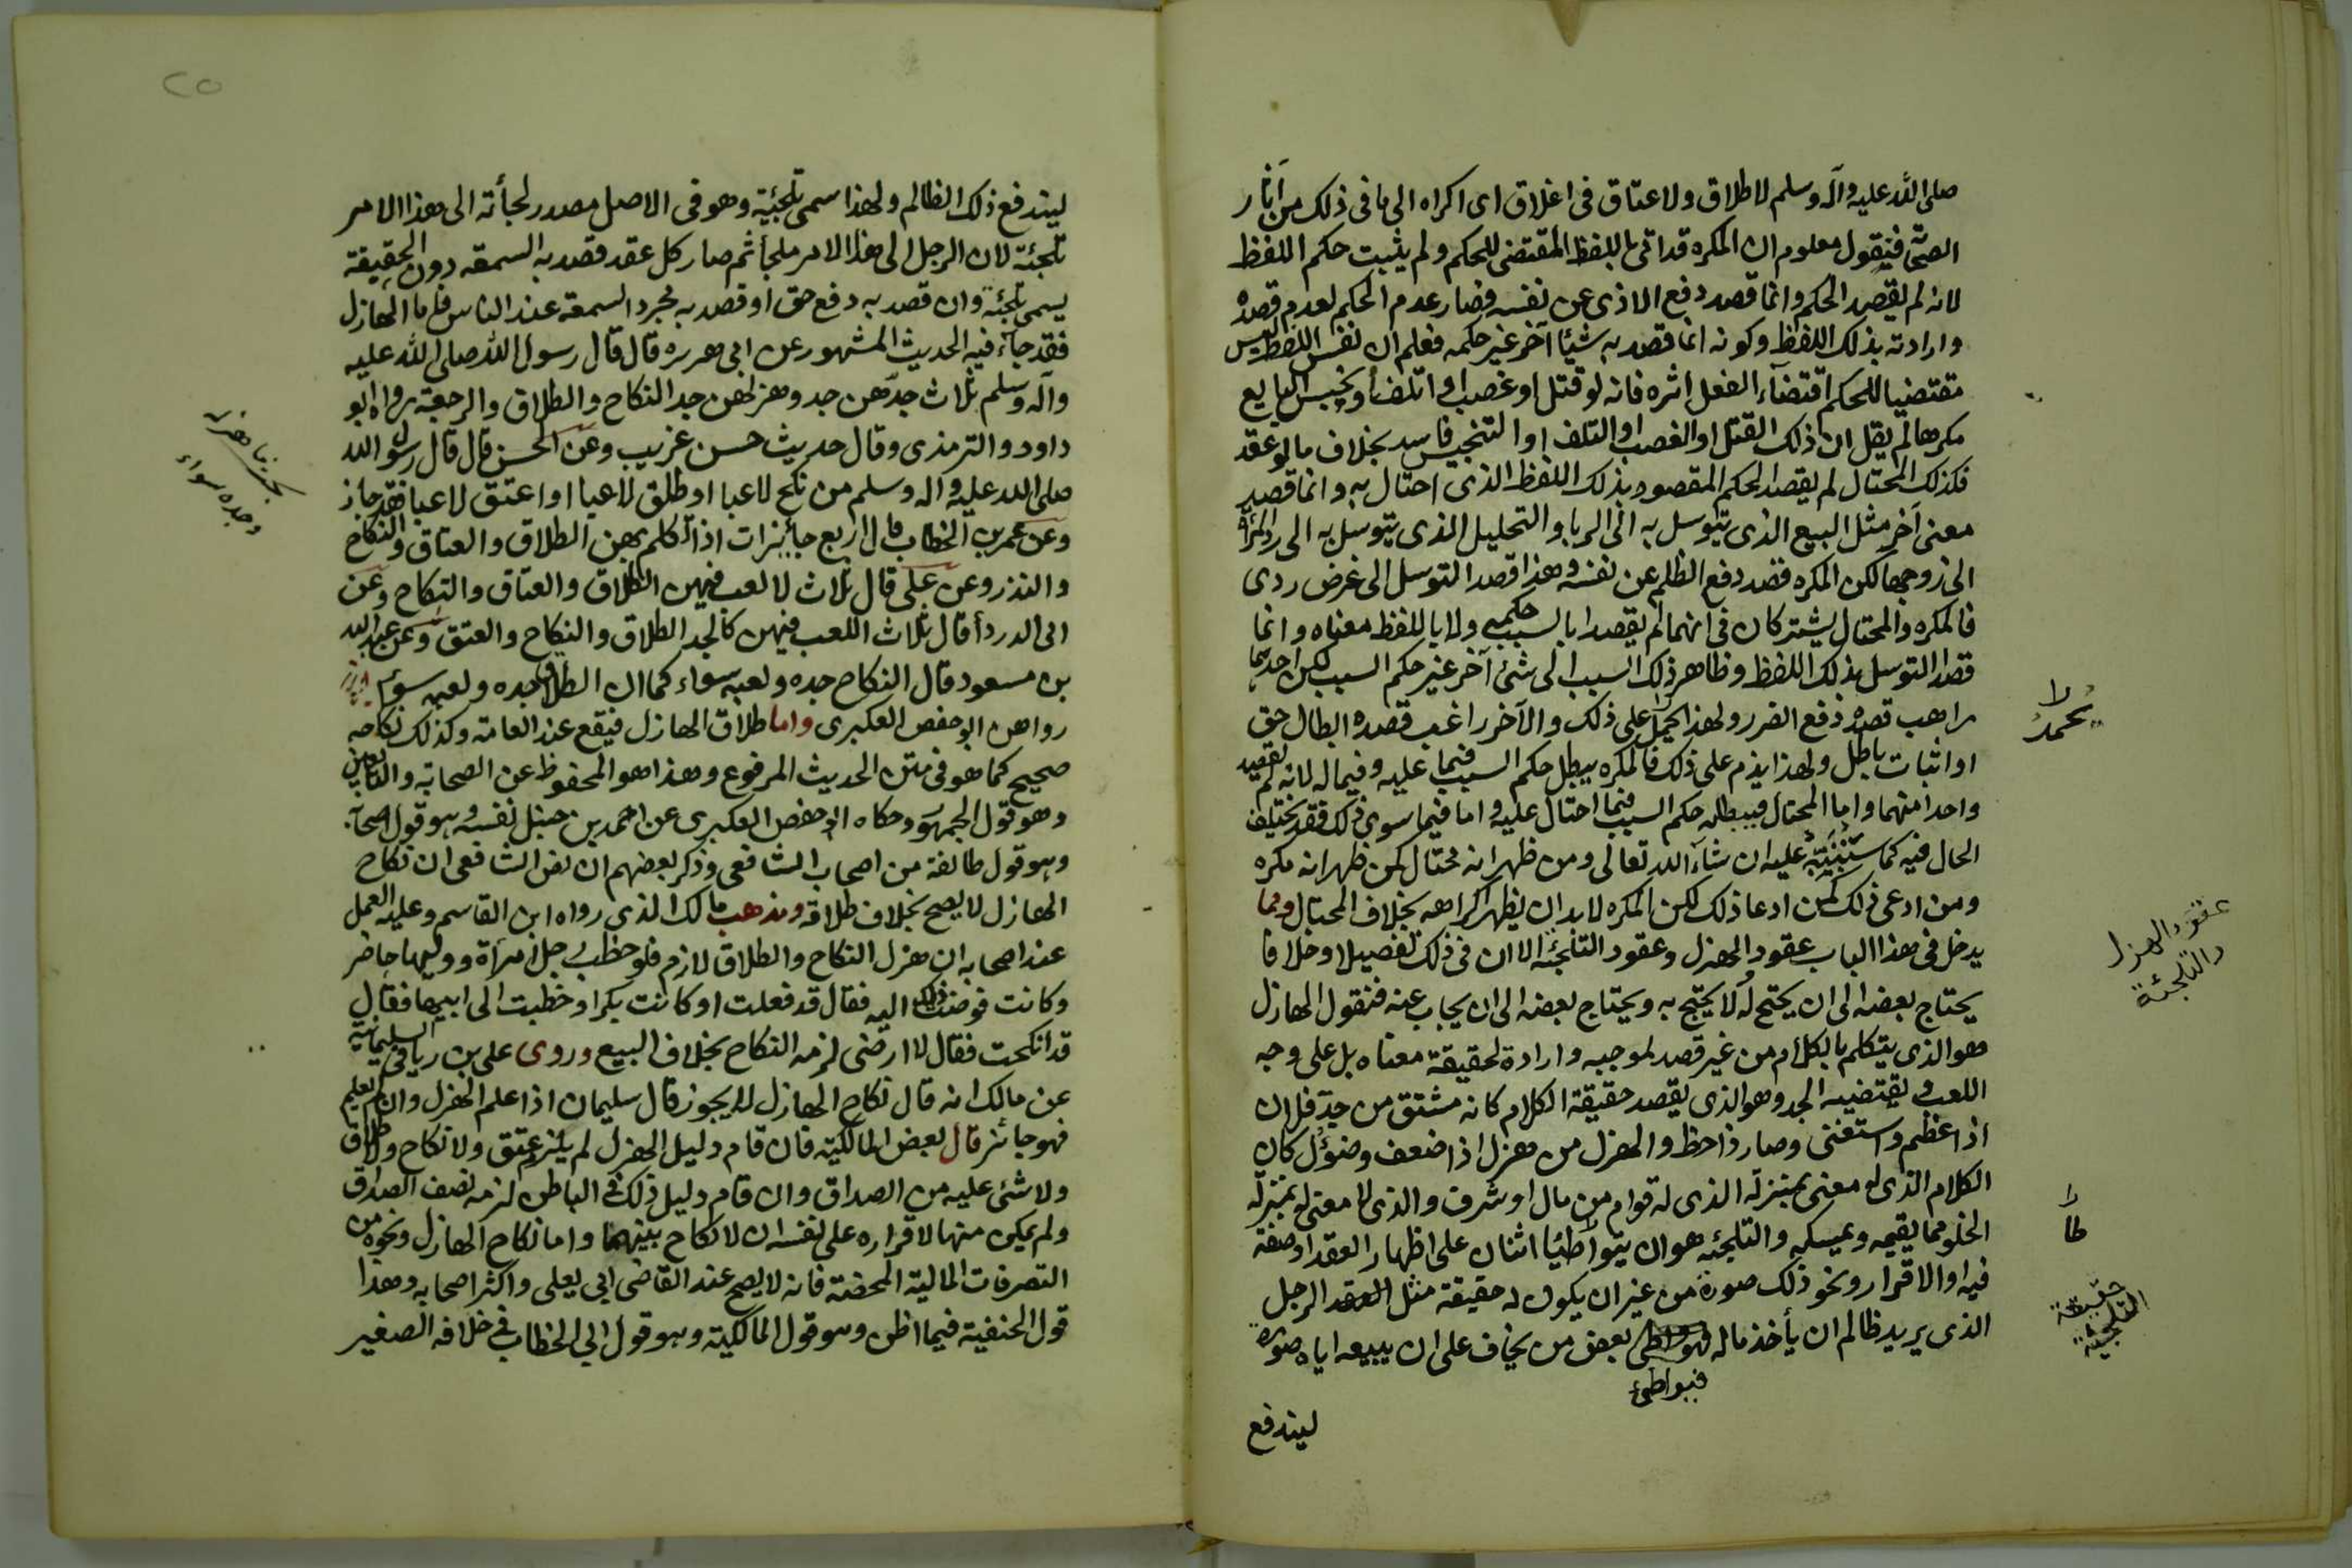 صلى الله عليه وآله وسلم لا طلاق ولا عتاق فى اغلاق اى اكراه الى ما فى ذلك من آثار
الصحابة فنقول معلوم ان المكره قد اتى باللفظ المقتضى للحكم ولم يثبت حكم اللفظ
لانه لم يقصد الحكم وانما قصد دفع الاذى عن نفسه فصار عدم الحكم لعدم قصده
وارادته بذلك اللفظ وكونه انما قصد به شيئا آخر غير حكمه فعلم ان نفس اللفظ ليس
مقتضيا للحكم اقتضاء الفعل اثره فانه لو قتل او غصب او اتلف او بخس البايع
مكرها لم يقل ان ذلك القتل او الغصب او التلف او التنجيس فاسد بخلاف ما لو عقد
فكذلك المحتال لم يقصد الحكم المقصود بذلك اللفظ الذى احتال به وانما قصد
معنى آخر مثل البيع الذى يتوسل به الى الربا والتحليل الذى يتوسل به الى رد المرأة
الى زوجها لكن المكره قصد دفع الظلم عن نفسه وهذا قصد التوسل الى غرض ردى
فالمكره والمحتال يشتركان فى انهما لم يقصدا بالسبب حكمه ولا باللفظ معناه وانما
قصدا التوسل بذلك اللفظ وظاهر ذلك السبب الى شئ آخر غير حكم السبب لكن احدهما
راهب قصده دفع الضرر ولهذا يحمد على ذلك والآخر راغب قصده ابطال حق
او اثبات باطل ولهذا يذم على ذلك فالمكره يبطل حكم السبب فيما عليه وفيما له لانه لم يقصد
واحدا منهما واما المحتال فيبطل حكم السبب فيما احتال عليه واما فيما سوى ذلك فقد يختلف
الحال فيه كما سننبه عليه ان شاء الله تعالى ومن ظهر انه محتال كمن ظهر انه مكره
ومن ادعى ذلك كمن ادعا ذلك لكن المكره لا بد ان يظهر اكراهه بخلاف المحتال ومما
يدخل فى هذا الباب عقود الهزل وعقود التلجئه الا ان فى ذلك تفصيلا وخلافا
يحتاج بعضه الى ان يحتج له لا يحتج به ويحتاج بعضه الى ان يجاب عنه فنقول الهازل
هو الذى يتكلم بالكلام من غير قصد لموجبه وارادة لحقيقة معناه بل على وجه
اللعب ونقيضه الجد وهو الذى يقصد حقيقة الكلام كانه مشتق من جد فلان
اذا عظم واستغنى وصار ذا حظ والهزل من هزل اذا ضعف وضؤل كان
الكلام الذى له معنى بمنزلة الذى له قوام من مال او شرف والذى لا معنى له بمنزلة
الخلو مما يقيمه ويمسكه والتلجئه هو ان يتواطيا اثنان على اظهار العقد او صفة
فيه او الاقرار ونحو ذلك صورة من غير ان يكون له حقيقة مثل الرجل
الذى يريد ظالم ان يأخذ ماله بعض من يخاف على ان يبيعه اياه صورة
فيواطئ
ليندفع
يحمد
عقود الهزل
والتلجئة
طا
حقيقة
التلجئة
٢٥
ليندفع ذلك الظالم ولهذا سمى تلجئة وهو فى الاصل مصدر لجأته الى هذا الامر
تلجئة لان الرجل الى هذا الامر ملجأ ثم صار كل عقد قصد به السمعه دون الحقيقة
يسمى تلجئة وان قصد به دفع حق او قصد به مجرد السمعة عند الناس فاما الهازل
فقد جاء فيه الحديث المشهور عن ابى هريره قال قال رسول الله صلى الله عليه
وآله وسلم ثلاث جدهن جد وهزلهن جد النكاح والطلاق والرجعة رواه ابو
داود والترمذى وقال حديث حسن غريب وعن الحسن قال قال رسول الله
صلى الله عليه واله وسلم من نكح لاعبا او طلق لاعبا او اعتق لاعبا فقد جاز
وعن عمر بن الخطاب قال اربع جائزات اذا تكلم بهن الطلاق والعتاق والنكاح
والنذر وعن على قال ثلاث لا لعب فيهن الطلاق والعتاق والنكاح وعن
ابى الدردا قال ثلاث اللعب فيهن كالجد الطلاق والنكاح والعتق وعن عبد الله
بن مسعود قال النكاح جده ولعبه سواء كما ان الطلاق جده ولعبه سواء
رواهن ابو حفص العكبرى واما طلاق الهازل فيقع عند العامة وكذلك نكاحه
صحيح كما هو فى متن الحديث المرفوع وهذا هو المحفوظ عن الصحابة والتابعين
وهو قول الجمهور وحكاه ابو حفص العكبرى عن احمد بن حنبل نفسه وهو قول اصحابه
وهو قول طائفة من اصحاب الشافعى وذكر بعضهم ان نص الشافعى ان نكاح
الهازل لا يصح بخلاف طلاقه ومذهب مالك الذى رواه ابن القاسم وعليه العمل
عند اصحابه ان هزل النكاح والطلاق لازم فلو خطب رجل امرأة ووليها حاضر
وكانت فوضت ذلك اليه فقال قد فعلت او كانت بكرا وخطبت الى ابيها فقال
قد انكحت فقال لا ارضى لزمه النكاح بخلاف البيع وروى على بن زياد فى السليمانية
عن مالك انه قال نكاح الهازل لا يجوز قال سليمان اذا علم الهزل وان لم يعلم
فهو جائز قال بعض المالكية فان قام دليل الهزل لم يلزم عتق ولا نكاح ولا طلاق
ولا شئ عليه من الصداق وان قام دليل ذلك فى الباطن لزمه نصف الصداق
ولم يمكن منها لاقراره على نفسه ان لا نكاح بينهما واما نكاح الهازل ونحوه من
التصرفات المالية المحضة فانه لا يصح عند القاضى ابى يعلى واكثر اصحابه وهذا
قول الحنفية فيما اظن وهو قول المالكية وهو قول ابى الخطاب فى خلافه الصغير
وجده سواء